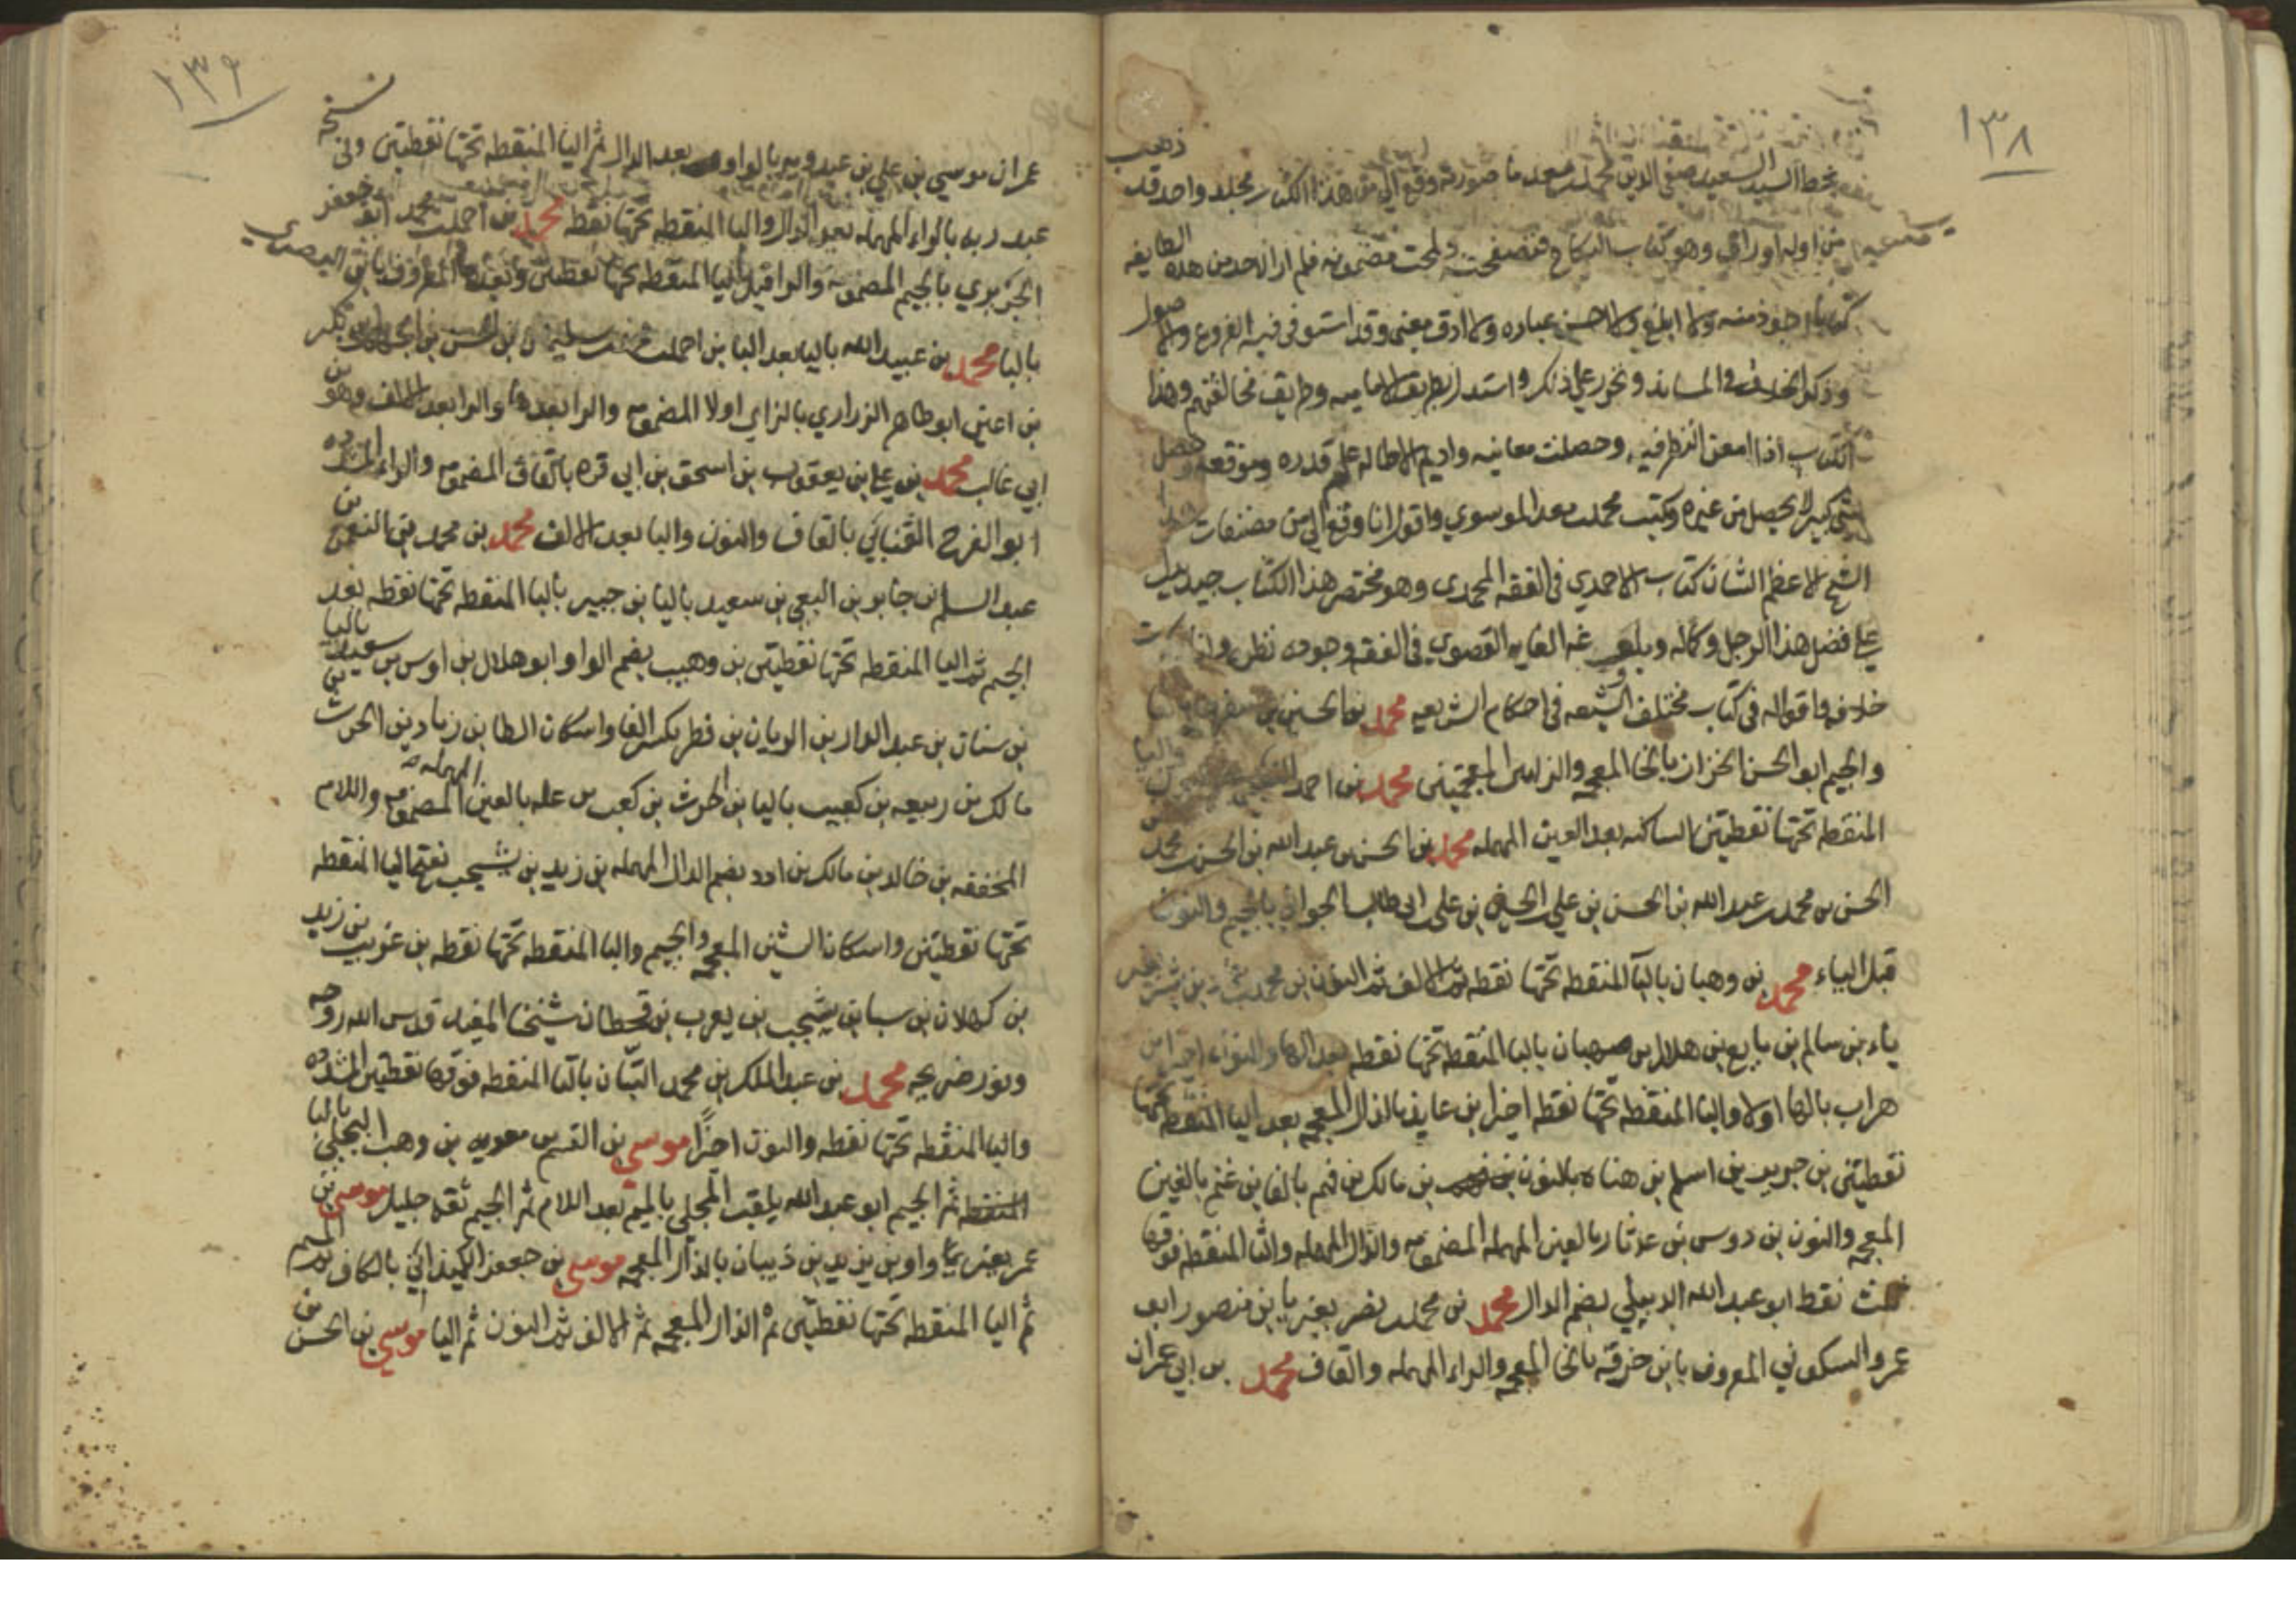 ١٣٨
بخط السيد السعيد صفي الدين محمد بن معد ما صورته وقع الي من هذا الكتاب مجلد واحد قد
ذهب
من اوله اوراق وهو كتاب النكاح فتصفحته ولمحت مضمونه فلم ار لاحد من هذه الطايفه
كتابا اجود منه ولا ابلغ ولا احسن عباره ولا ادق معنى وقد استوفى فيه الفروع والاصول
وذكر الخلاف في المسائل وتحرر على ذلك واستدل بطريق الاماميه وطريق مخالفيهم وهذا
الكتاب اذا امعن النظر فيه وحصلت معانيه واديم الاطاله علم قدره وموقعه وحصل
شي كثير لا يحصل من غيره وكتب محمد بن معد الموسوي واقول انا وقع الي من مصنفات هذا
الشيخ الاعظم الشان كتاب الاحمدي في الفقه المحمدي وهو مختصر هذا الكتاب جيد يدل
على فضل هذا الرجل وكماله وبلوغه الغايه القصوى في الفقه وجوده نظره وانا ذكرت
خلافه واقواله في كتاب مختلف الشيعه في احكام الشريعه محمد بن الحسين بن سفرجله بالفا
والجيم ابو الحسن الخزاز بالخا المعجمه والزايين المعجمتين محمد بن احمد
المنقطه تحتها نقطتين الساكنه بعد العين المهمله محمد بن الحسن بن عبد الله بن الحسن بن محمد بن
الحسن بن محمد بن عبد الله بن الحسن بن علي الحسين بن علي ابي طالب الجواني بالجيم والنون
قبل الياء محمد بن وهبان بالبا المنقطه تحتها نقطه ثم الالف ثم النون بن محمد بن بشر بغير
ياء بن سالم بن نافع بن هلال بن صهبان بالبا المنقطه تحتها نقطه بعد الها والنون اخيرا بن
هراب بالها اولا والبا المنقطه تحتها نقطه اخيرا بن عايذ بالذال المعجمه بعد اليا المنقطه تحتها
نقطتين بن جرير بن اسلم بن هناه بالنون بن مالك بن فهم بالفا بن غنم بالغين
المعجمه والنون بن دوس بن عدثان بالعين المهمله المضمومه والدال المهمله والثا المنقطه فوقها
ثلث نقط ابو عبد الله الدبيلي بضم الدال محمد بن محمد بن نصر بغير يا بن منصور ابو
عمرو السكوني المعروف بابن خرقه بالخا المعجمه والراء المهمله والقاف محمد بن ابي عمران
١٣٩
نسخه
عمران موسى بن علي بن عبدويه بالواو بعد الدال ثم اليا المنقطه تحتها نقطتين وفي
عبد ربه بالراء المهمله بعد الدال والبا المنقطه تحتها نقطه محمد بن احمد بن محمد ابو جعفر
الجريري بالجيم المضمومه والرا قبل اليا المنقطه تحتها نقطتين وبعدها المعروف بابن البصري
باليا محمد بن عبيد الله باليا بعد البا بن احمد بن محمد بن سليمان بن الحسن بن الجهم بن بكير
بن اعين ابو طاهر الزراري بالزاي اولا المضمومه والرا بعدها والرا بعد الالف وهو بن
ابي غالب محمد بن علي بن يعقوب بن اسحق بن ابي قره بالقاف المضمومه والراء المشدده
ابو الفرج القنائي بالقاف والنون واليا بعد الالف محمد بن محمد بن النعمن بن
عبد السلم بن جابر بن النعمن بن سعيد باليا بن جبير بالبا المنقطه تحتها نقطه بعد
الجيم ثم اليا المنقطه تحتها نقطتين بن وهيب بضم الواو ابو هلال بن اوس بن سعيد باليا
بن سنان بن عبد الدار بن الريان بن فطر بكسر الفا واسكان الطا بن زياد بن الحرث بن
مالك بن ربيعه بن كعب باليا بن الحرث بن كعب بن عله بالعين المهمله المضمومه واللام
المخففه بن خالد بن مالك بن ادد بضم الدال المهمله بن زيد بن يشجب بفتح اليا المنقطه
تحتها نقطتين واسكان الشين المعجمه والجيم والبا المنقطه تحتها نقطه بن عريب بن زيد
بن كهلان بن سبا بن يشجب بن يعرب بن قحطان شيخنا المفيد قدس الله روحه
ونور ضريحه محمد بن عبد الملك بن محمد التبان بالتا المنقطه فوقها نقطتين المشدده
والبا المنقطه تحتها نقطه والنون اخيرا موسى بن القسم بن معويه بن وهب البجلي بالبا
المنقطه ثم الجيم ابو عبد الله يلقب المجلي بالميم بعد اللام ثم الجيم ثقه جليل موسى بن
عمر بغير واو بن يزيد بن ذبيان بالذال المعجمه موسى بن جعفر الكميذاني بالكاف ثم الميم
ثم اليا المنقطه تحتها نقطتين ثم الذال المعجمه ثم الالف ثم النون ثم اليا موسى بن الحسن بن